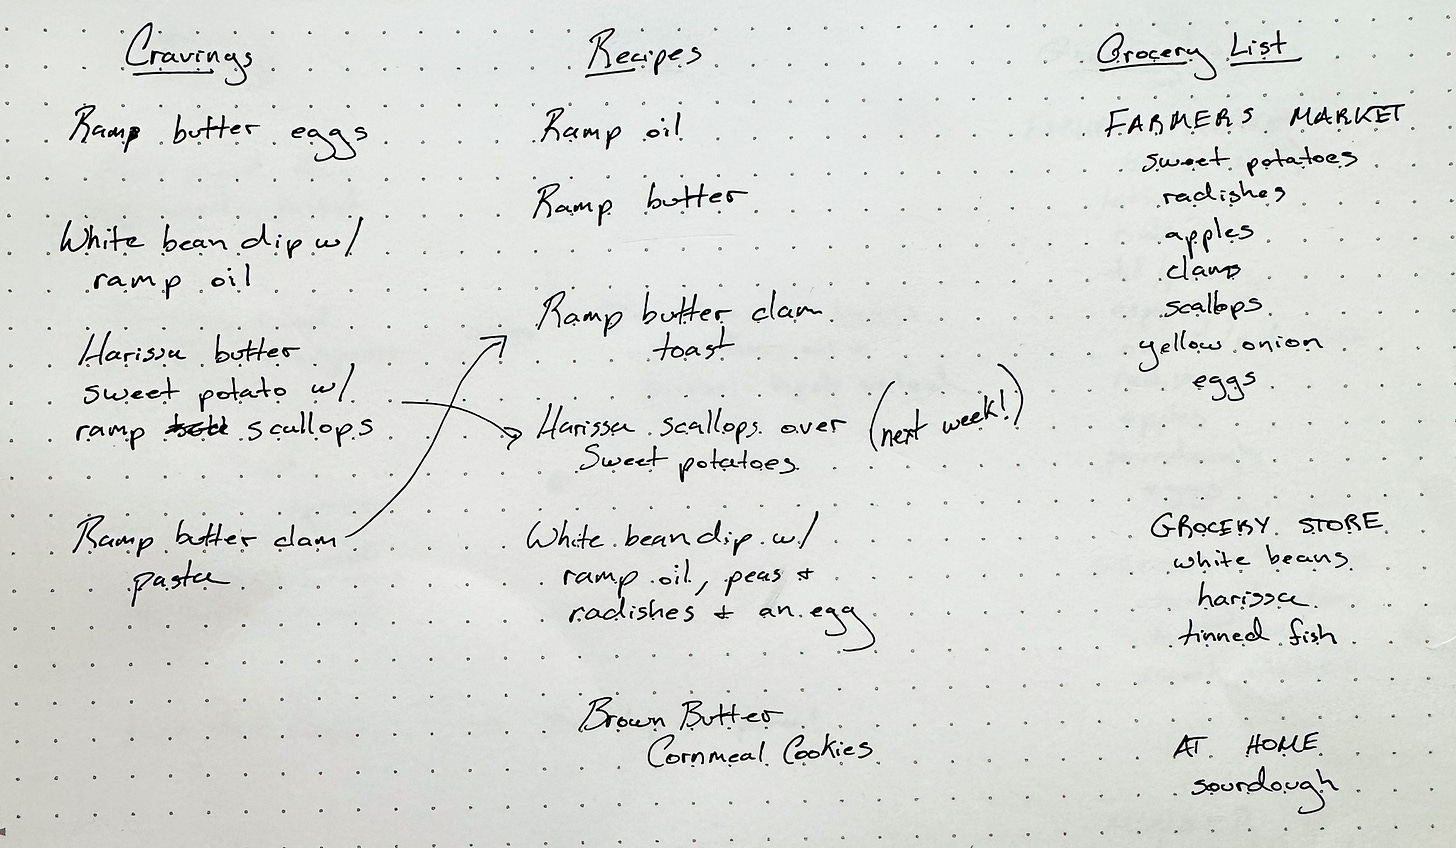 Cravings
Ramp butter eggs
White bean dip w/
ramp oil
Harissa butter
sweet potato w/
ramp scallops
Ramp butter clam
pasta
Recipes
Ramp oil
Ramp butter
Ramp butter clam
toast
Harissa scallops over (next week!)
Sweet potatoes
White bean dip w/
ramp oil, peas +
radishes + an egg
Brown Butter
Cornmeal Cookies
Grocery List
FARMERS MARKET
sweet potatoes
radishes
apples
clams
scallops
yellow onion
eggs
GROCERY STORE
white beans
harissa
tinned fish
AT HOME
sourdough